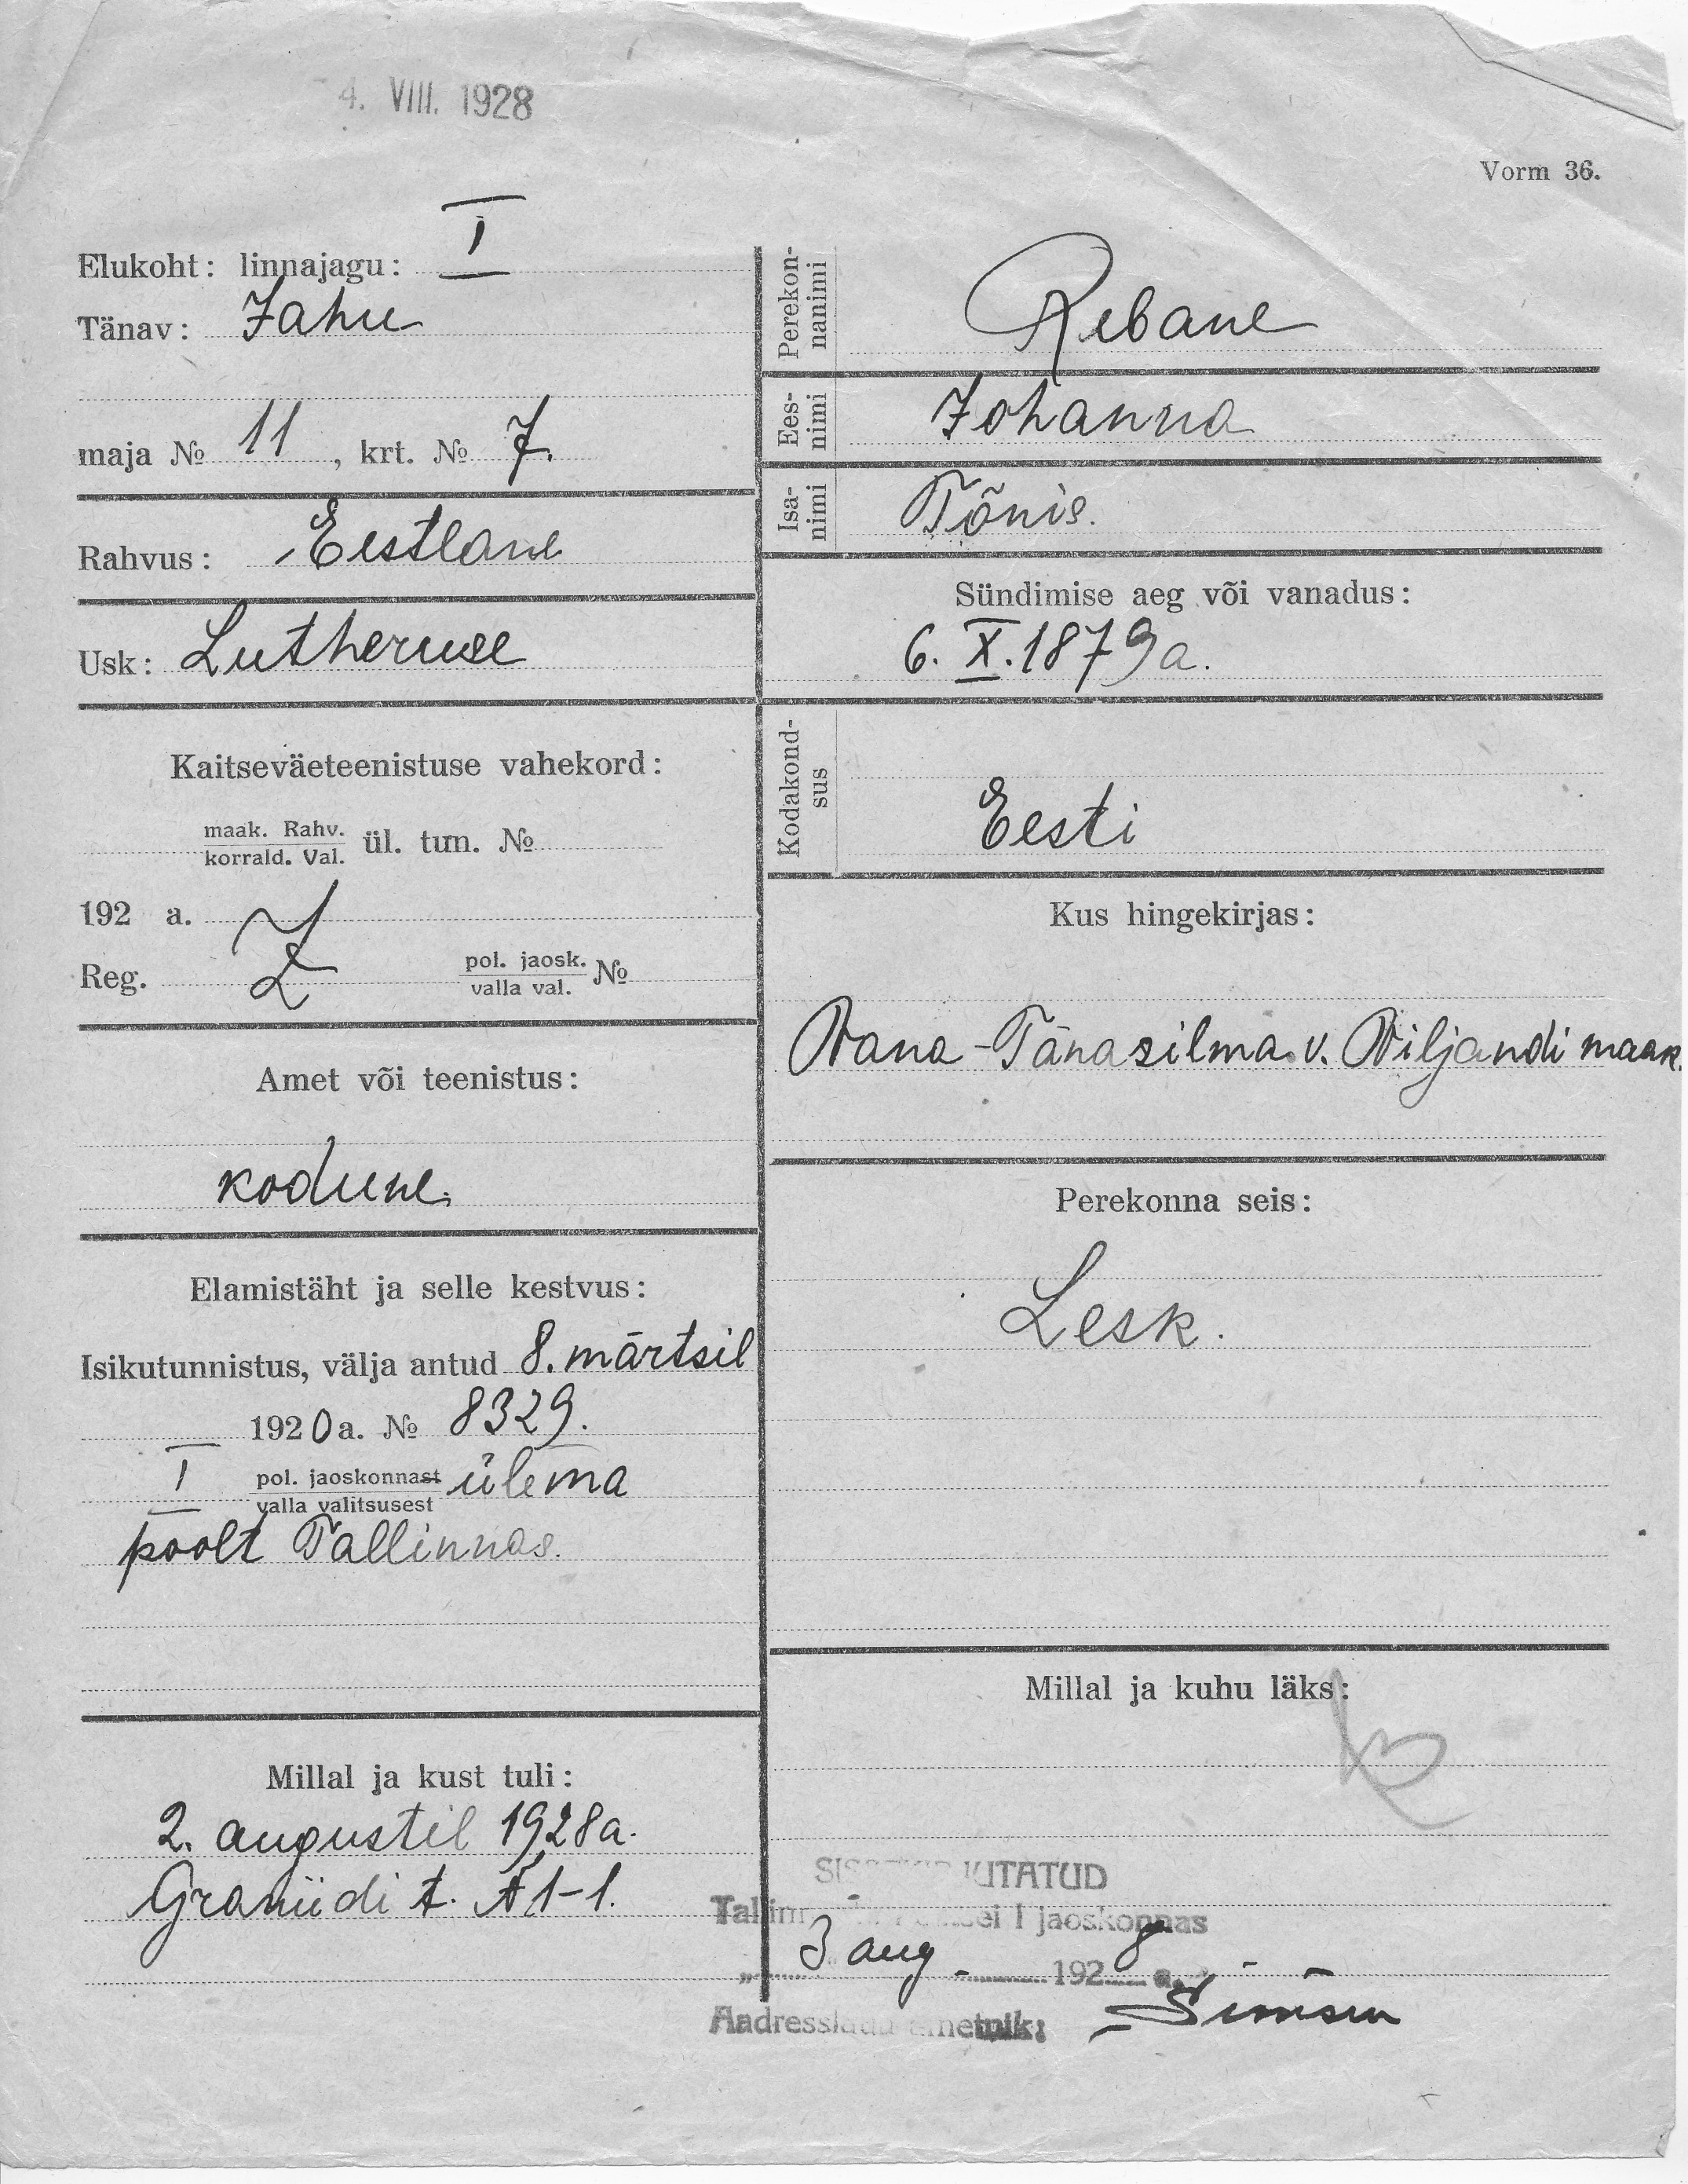 4. VIII. 1928
Vorm 36.
Elukoht: linnajagu: I
Tänav: Jahu
maja № 11, krt. № 7.
Rahvus: Eestlane
Usk: Lutheruse
Kaitseväeteenistuse vahekord:
maak. Rahv.
korrald. Val. ül. tun. №
192 a.
Reg. pol. jaosk.
valla val. №
Amet või teenistus:
kodune.
Elamistäht ja selle kestvus:
Isikutunnistus, välja antud 8. märtsil
1920 a. № 8329.
I pol. jaoskonnast ülema
valla valitsusest
poolt Tallinnas.
Millal ja kust tuli:
2. augustil 1928a.
Graniidi t. 1-1.
Perekon-
nanimi
Rebane
Ees-
nimi
Johanna
Isa-
nimi
Tõnis.
Sündimise aeg või vanadus:
6. X. 1879 a.
Kodakond-
sus
Eesti
Kus hingekirjas:
Wana-Tänasilma v. Wiljandi maak.
Perekonna seis:
Lesk.
Millal ja kuhu läks:
jaoskonnas
3 aug. 1928 a.